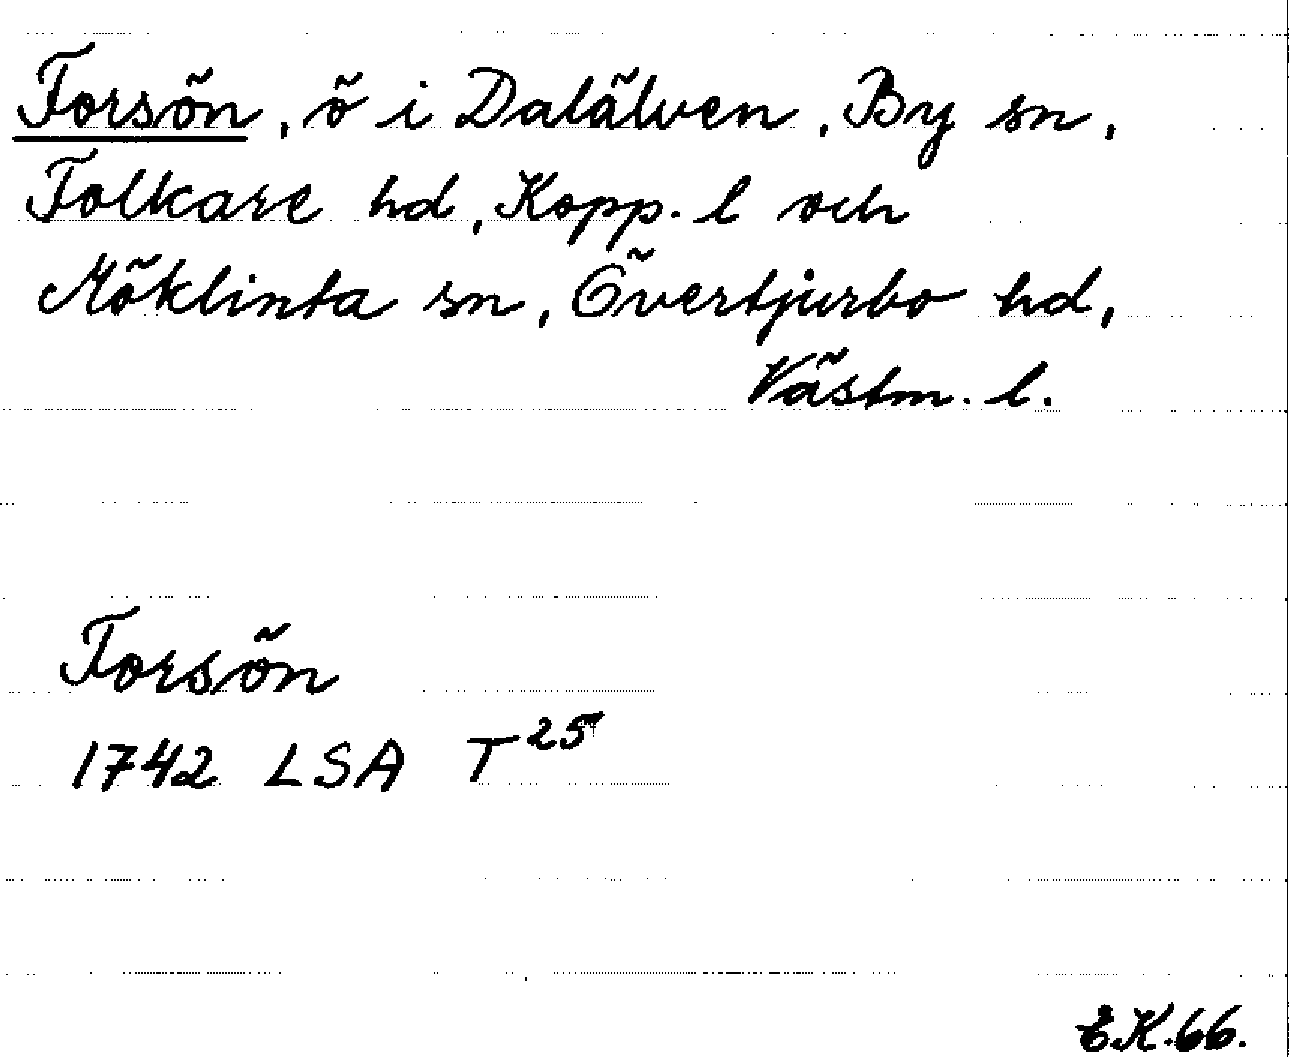 Forsön, ö i Dalälven, By sn,
Folkare hd, Kopp. l och
Möklinta sn, Övertjurbo hd,
Västm. l.
Forsön
1742 LSA T²⁵
E.K.66.